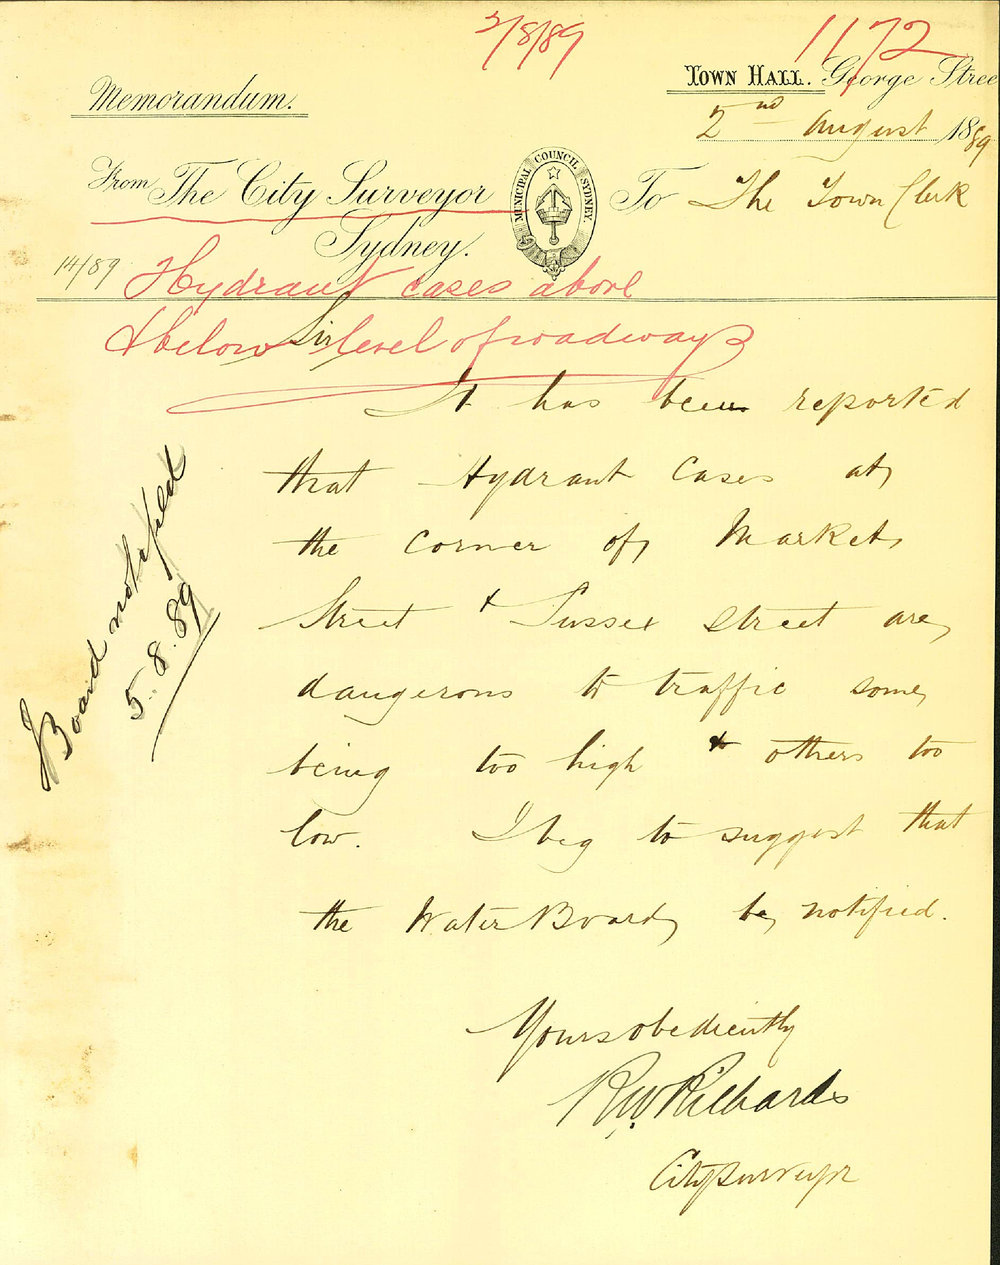 2/8/89
1172
Memorandum.
TOWN HALL. George Stree
2nd August 1889
From The City Surveyor
MUNICIPAL COUNCIL SYDNEY.
To The Town Clerk
Sydney.
14/89
Hydrant cases above
& below level of roadways
Sir
It has been reported
that Hydrant Cases at
the corner of Market
Street & Sussex Street are
dangerous to traffic some
being too high & others too
low. I beg to suggest that
the Water Board be notified.
Board notified
5.8.89
Yours obediently
R.W. Richards
City Surveyor